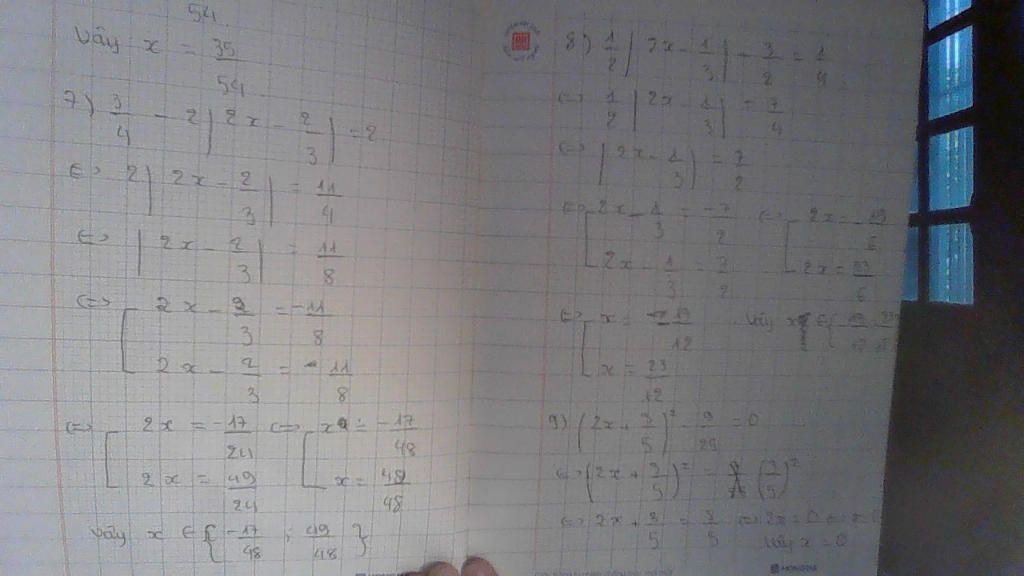 54
Vậy x = 35/54
7) 3/4 - 2|2x - 2/3| = 2
<=> 2|2x - 2/3| = 11/4
<=> |2x - 2/3| = 11/8
<=> [ 2x - 2/3 = -11/8
2x - 2/3 = -11/8
<=> [ 2x = -17/24 <=> [ x = -17/48
2x = 49/24 x = 49/48
Vậy x ∈ { -17/48 ; 49/48 }
8) 1/2 |2x - 1/3| - 3/2 = 1/4
<=> 1/2 |2x - 1/3| = 7/4
<=> |2x - 1/3| = 7/2
<=> [ 2x - 1/3 = -7/2 <=> [ 2x = -19/6
2x - 1/3 = 7/2 2x = 23/6
<=> [ x = -19/12 Vậy x ∈ { -19/12
x = 23/12
9) (2x + 3/5)² - 9/25 = 0
<=> (2x + 3/5)² = (3/5)²
<=> 2x + 3/5 = 3/5 <=> 2x = 0 <=> x
Vậy x = 0